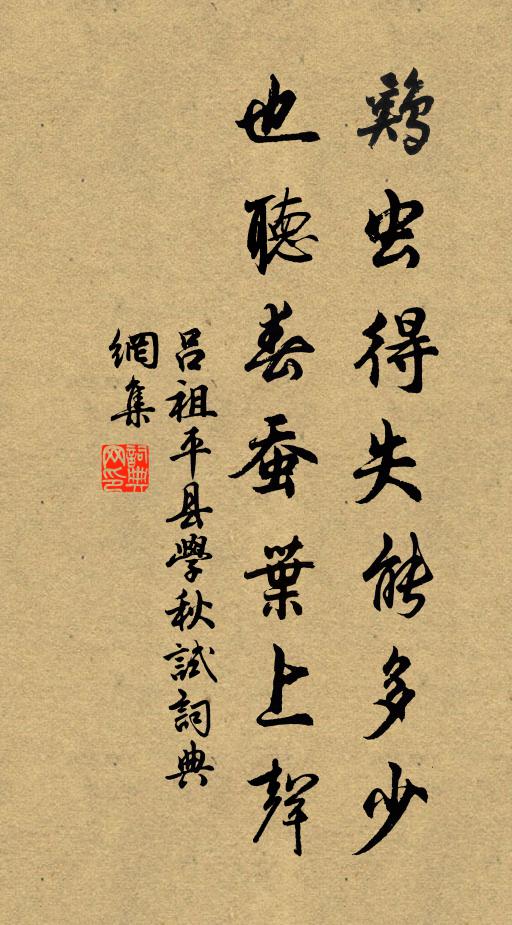 鸡虫得失能多少
也聽春蚕葉上聲
吕祖平县學秋試詞典
網集
詞典網印